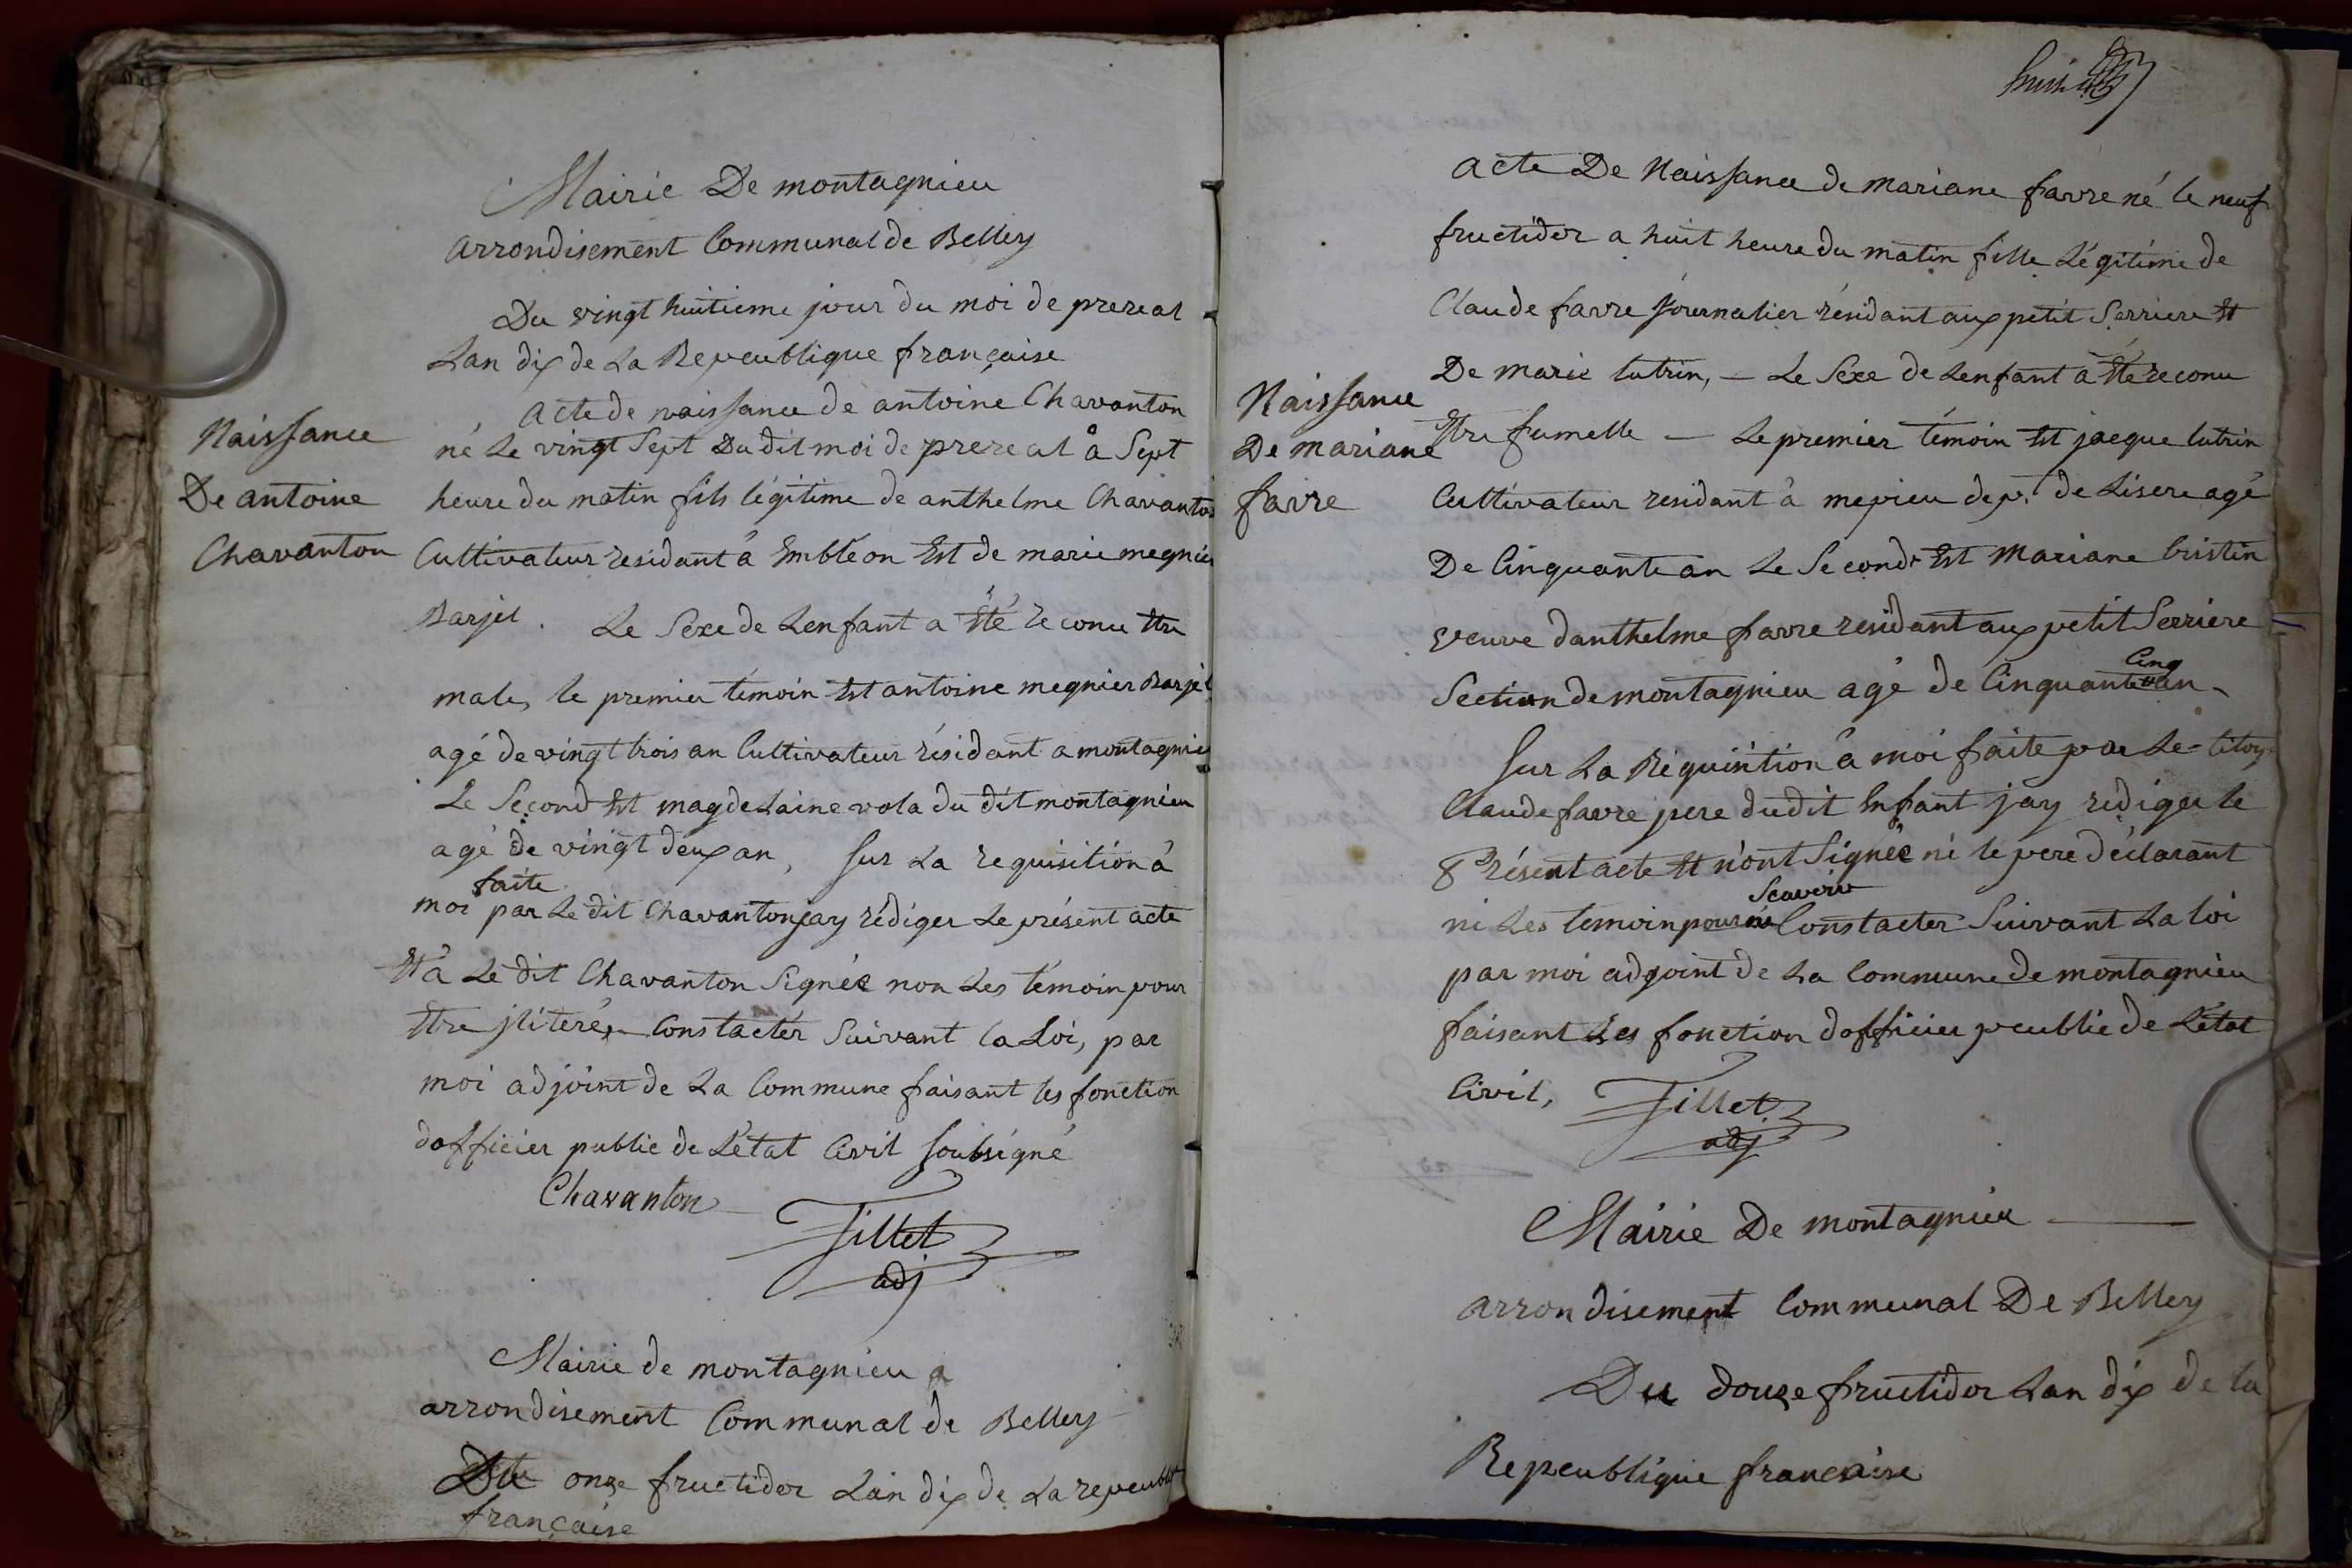 Mairie De montagnieu
arrondisement Communal de Belley
Du vingt huitieme jour du moi de prereal
Lan dix de La Repeublique française
Naissance
De antoine
Chavanton
acte de naissance de antoine Chavanton
né Le vingt Sept Du dit moi de prereal à Sept
heure du matin fils légitime de anthelme Chavanton
Cultivateur residant à Embléon Est de marie megnier
Barjel. Le Sexe de Lenfant a Eté reconu Etre
male, le premier témoin Est antoine megnier Barjel
agé de vingt trois an Cultivateur résidant a montagnieu
Le Second Est magdelaine vola du dit montagnieu
agé de vingt deux an, Sur La requisition à
moi faite par Le dit Chavanton jay rédiger Le présent acte
Et a Le dit Chavanton Signée non Les témoin pour
Etre jliteré, Constacter Suivant la Loi, par
moi adjoint de La Commune faisant les fonction
dofficier public de Létat Civil Soubsigné
Chavanton
Tillet
adj
Mairie de montagnieu
arrondisement Communal de Belley
Du onze fructidor Lan dix de La repeublit
française
huit
Naissance
De mariane
favre
acte De Naissance de mariane favre né le neuf
fructidor a huit heure du matin fille Légitime de
Claude favre journalier résidant aux petit Serriere Et
De marie lutrin, — Le Séxe de Lenfant à Eté reconu
Etre fumelle — Le premier témoin Est jacque lutrin
Cultivateur residant à mepieu dep.t de Lisere agé
De Cinquante an Le Second Est Mariane Cristin
veuve danthelme favre residant aux petit Serriere
Section de montagnieu agé de Cinquante Cinq an
Sur La Réquisition à moi faite par Le - citoy
Claude favre pere dudit Enfant jay rediger le
Présent acte Et n'ont Signée ni le pere déclarant
ni Les temoin pour ne Scavoire Constacter Suivant La loi
par moi adjoint de La Commune de montagnieu
faisant Les fonction dofficier peublic de Létat
Civil,
Tillet
adj
Mairie De montagnieu
arrondisement Communal De Belley
Du douze fructidor Lan dix de la
Repeublique francaise